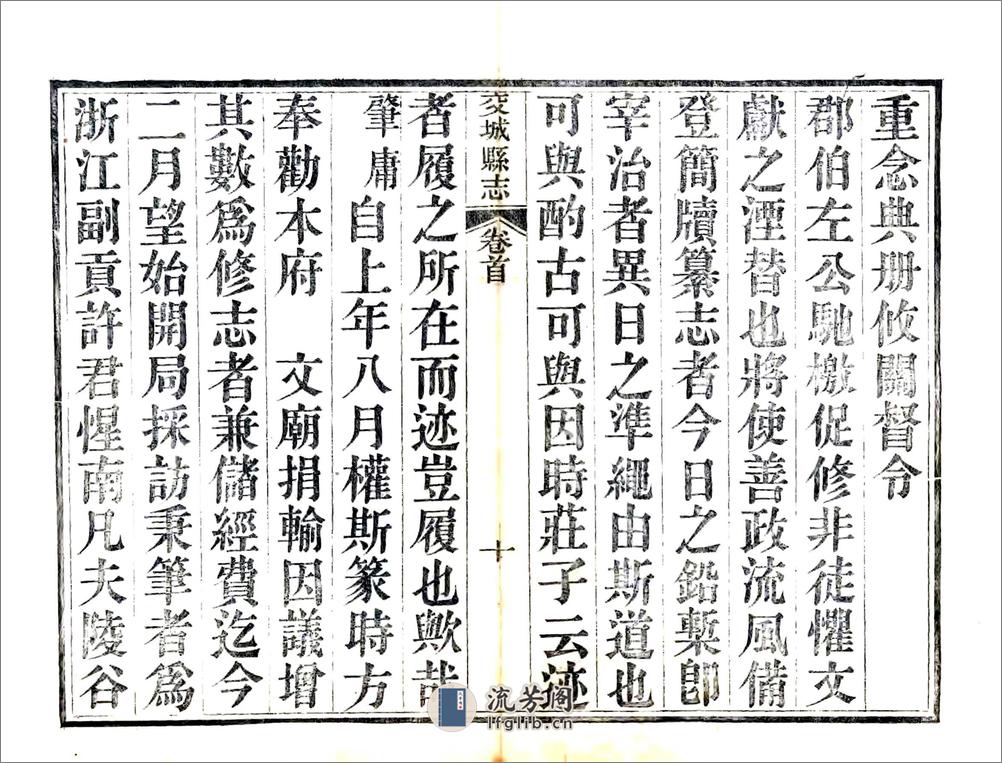 重念典册攸關督令
郡伯左公馳檄促修非徒懼文
獻之湮替也將使善政流風備
登簡牘纂志者今日之鉛槧卽
宰治者異日之準繩由斯道也
可與酌古可與因時莊子云迹
交城縣志
卷首
十
者履之所在而迹豈履也歟哉
肇庸自上年八月權斯篆時方
奉勸本府　文廟捐輸因議增
其數爲修志者兼儲經費迄今
二月望始開局採訪秉筆者爲
浙江副貢許君惺南凡夫陵谷
流芳阁
lfglib.cn